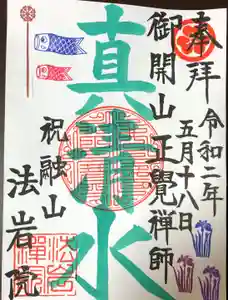 奉拝
令和二年
五月十八日
御開山正覺禅師
真清水
祝融山
法岩院